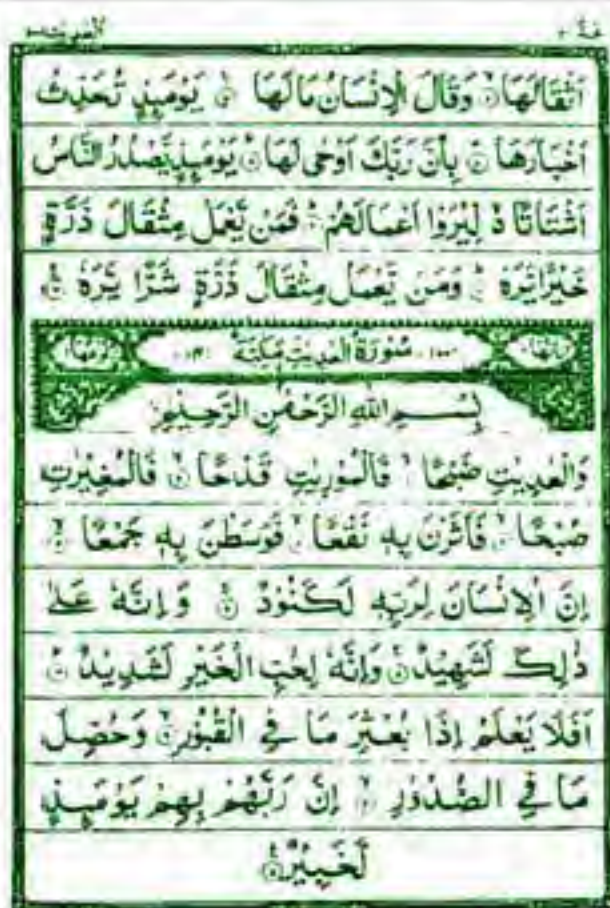 اَثْقَالَهَا ۙ وَقَالَ الْاِنْسَانُ مَالَهَا ۚ يَوْمَىِٕذٍ تُحَدِّثُ
اَخْبَارَهَا ۙ بِاَنَّ رَبَّكَ اَوْحٰى لَهَا ۭ يَوْمَىِٕذٍ يَّصْدُرُ النَّاسُ
اَشْتَاتًا ڏ لِّيُرَوْا اَعْمَالَهُمْ ۭ فَمَنْ يَّعْمَلْ مِثْقَالَ ذَرَّةٍ
خَيْرًا يَّرَهٗ ۭ وَمَنْ يَّعْمَلْ مِثْقَالَ ذَرَّةٍ شَرًّا يَّرَهٗ
سُوْرَةُ الْعٰدِيٰتِ مَكِّيَّةٌ
بِسْــــمِ اللّٰهِ الرَّحْمٰنِ الرَّحِيْمِ
وَالْعٰدِيٰتِ ضَبْحًا ۙ فَالْمُوْرِيٰتِ قَدْحًا ۙ فَالْمُغِيْرٰتِ
صُبْحًا ۙ فَاَثَرْنَ بِهٖ نَقْعًا ۙ فَوَسَطْنَ بِهٖ جَمْعًا ۙ
اِنَّ الْاِنْسَانَ لِرَبِّهٖ لَكَنُوْدٌ ۚ وَاِنَّهٗ عَلٰي
ذٰلِكَ لَشَهِيْدٌ ۚ وَاِنَّهٗ لِحُبِّ الْخَيْرِ لَشَدِيْدٌ ۭ
اَفَلَا يَعْلَمُ اِذَا بُعْثِرَ مَا فِي الْقُبُوْرِ ۙ وَحُصِّلَ
مَا فِي الصُّدُوْرِ ۙ اِنَّ رَبَّهُمْ بِهِمْ يَوْمَىِٕذٍ
لَّخَبِيْرٌ